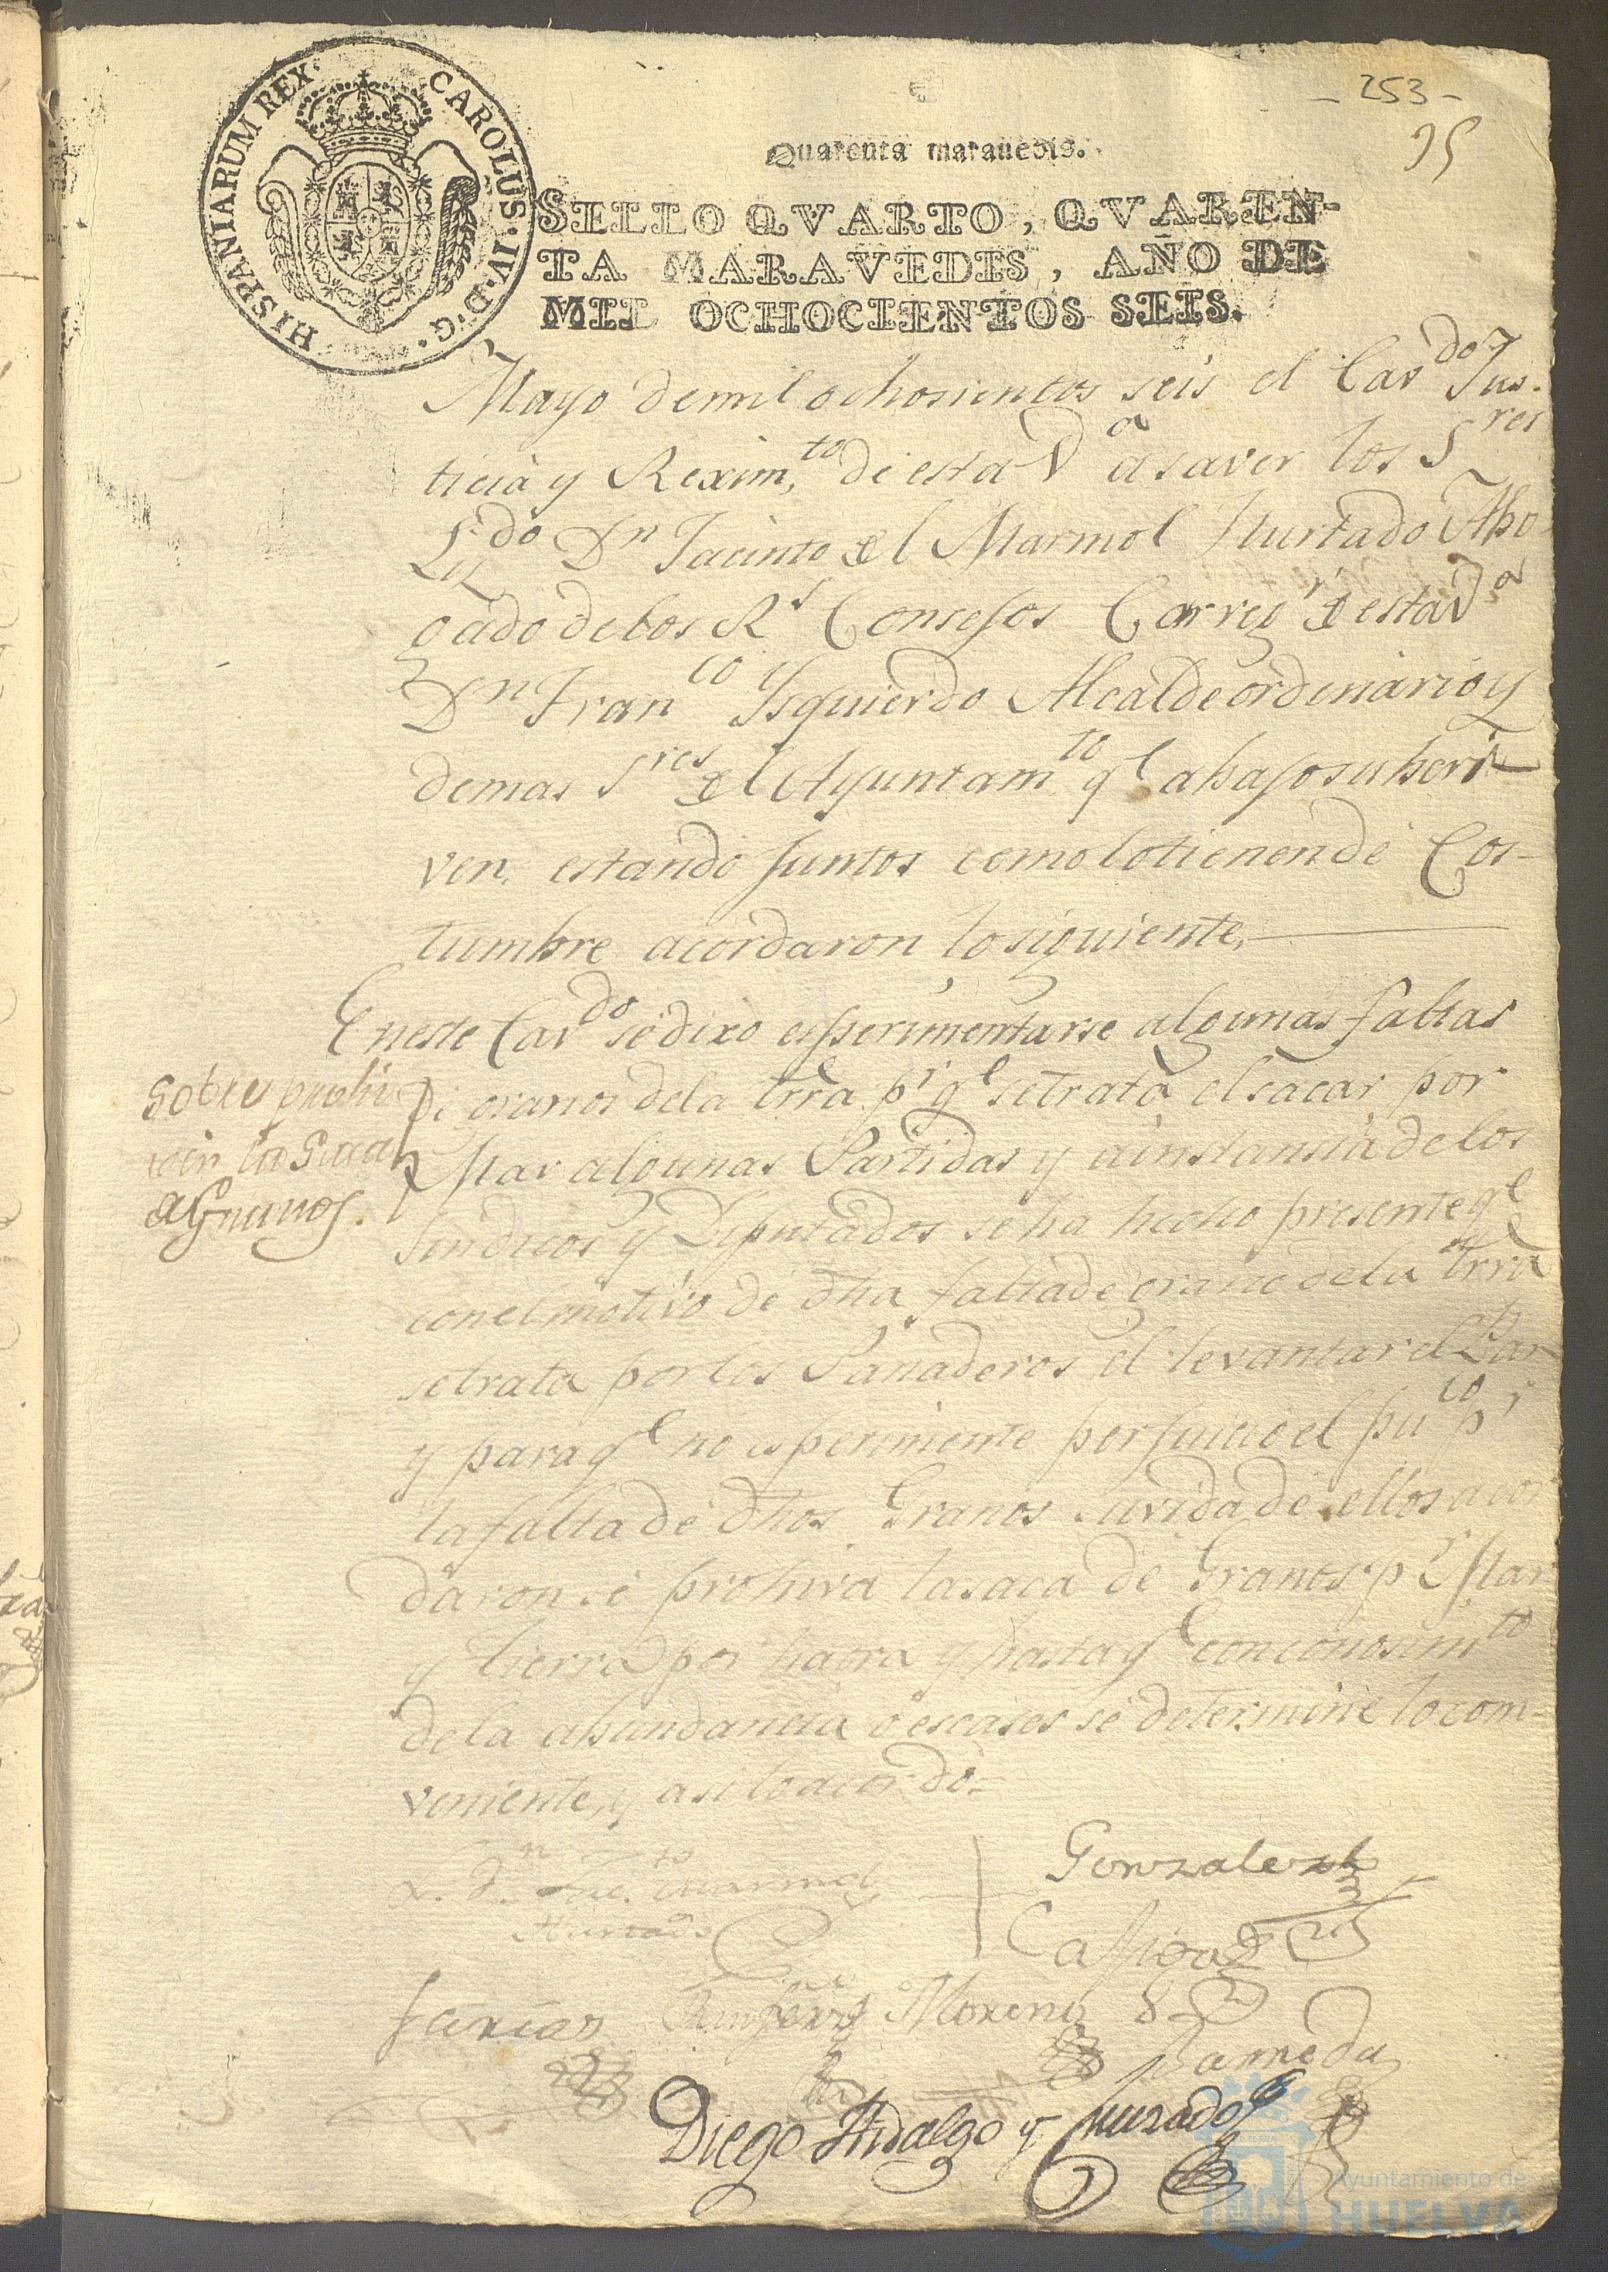 -253-
95
HISPANIARUM REX. CAROLUS. IV. D. G.
Quarenta marauedis.
SELLO QVARTO, QVAREN-
TA MARAVEDIS, AÑO DE
MIL OCHOCIENTOS SEIS.
Mayo de mil ochosientos seis el Cavdo Jus-
ticia y Reximto de esta Va a saver los Sres
Lizdo Dn Jacinto del Marmol Hurtado Abo
gado de los Rs Consejos Corregr de esta Va
Dn Franco Ysquierdo Alcalde ordinario y
demas Sres del Ayuntamto qe abajo subcri
ven, estando juntos como lo tienen de Cos-
tumbre acordaron lo siguiente,
En este Cavdo se dixo esperimentarse algunas faltas
Sobre prohi
vir la Saca
de Granos.
de granos de la trra pr qe se trata el sacar por
Mar algunas Partidas y a instansia de los
Sindicos y Diputados se ha hecho presente qe
con el motivo de dha falta de grano de la trra
se trata por los Panaderos el levantar el Pan
y para qe no esperimente perjuicio el puco pr
la falta de dhos Granos suvida de ellos acor
daron se prohiva la saca de Granos pr Mar
y tierra por haora y hasta qe con conosimto
de la abundancia o escases se determine lo com-
veniente, y asi lo acordó
L. Dn Jacto Marmol
Hurtado
Gonzalez
Farias
Moreno
Diego Hidalgo y
Ayuntamiento de
HUELVA